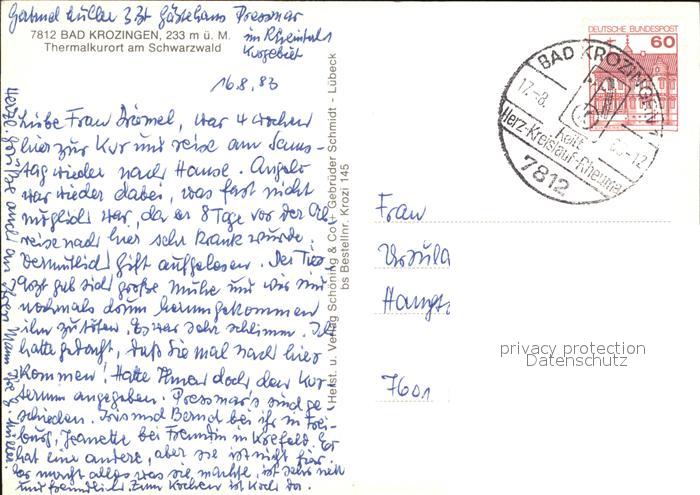 Gästehaus Pressmar
7812 BAD KROZINGEN, 233 m ü. M.
Thermalkurort am Schwarzwald
im Rheintal
Kurgebiet
16.8.83
Liebe Frau war 4 Wochen
hier zur Kur und reise am Sams-
tag wieder nach Hause. Angelo
war wieder dabei, was fast nicht
möglich war, da er 8 Tage vor der Ab-
reise nach hier sehr krank wurde;
vermutlich Gift aufgelesen. Der Tier-
arzt gab sich große Mühe und wir sind
nochmals drum herumgekommen
ihn zu töten. Es war sehr schlimm. Ich
hatte gedacht, daß Sie mal nach hier
kommen! Hatte Ihnen doch den Kur-
termin angegeben. Pressmar's sind ge-
schieden. Iris und Bernd bei ihr in Frei-
burg, Jeanette bei Freundin in Krefeld. Er
hat eine andere, aber sie ist nicht hier.
Er macht alles was sie machte, ist sehr nett
und freundlich. Zum Kochen ist Koch da.
Herzl. Grüße auch an Ihren Mann Ihre G. Müller.
Herst. u. Verlag Schöning & Co + Gebrüder Schmidt - Lübeck
bs Bestellnr. Krozi 145
DEUTSCHE BUNDESPOST
60
BAD KROZINGEN
17.-8.
83-12
Herz-Kreislauf-Rheuma
7812
Frau
Ursula
7601
privacy protection
Datenschutz